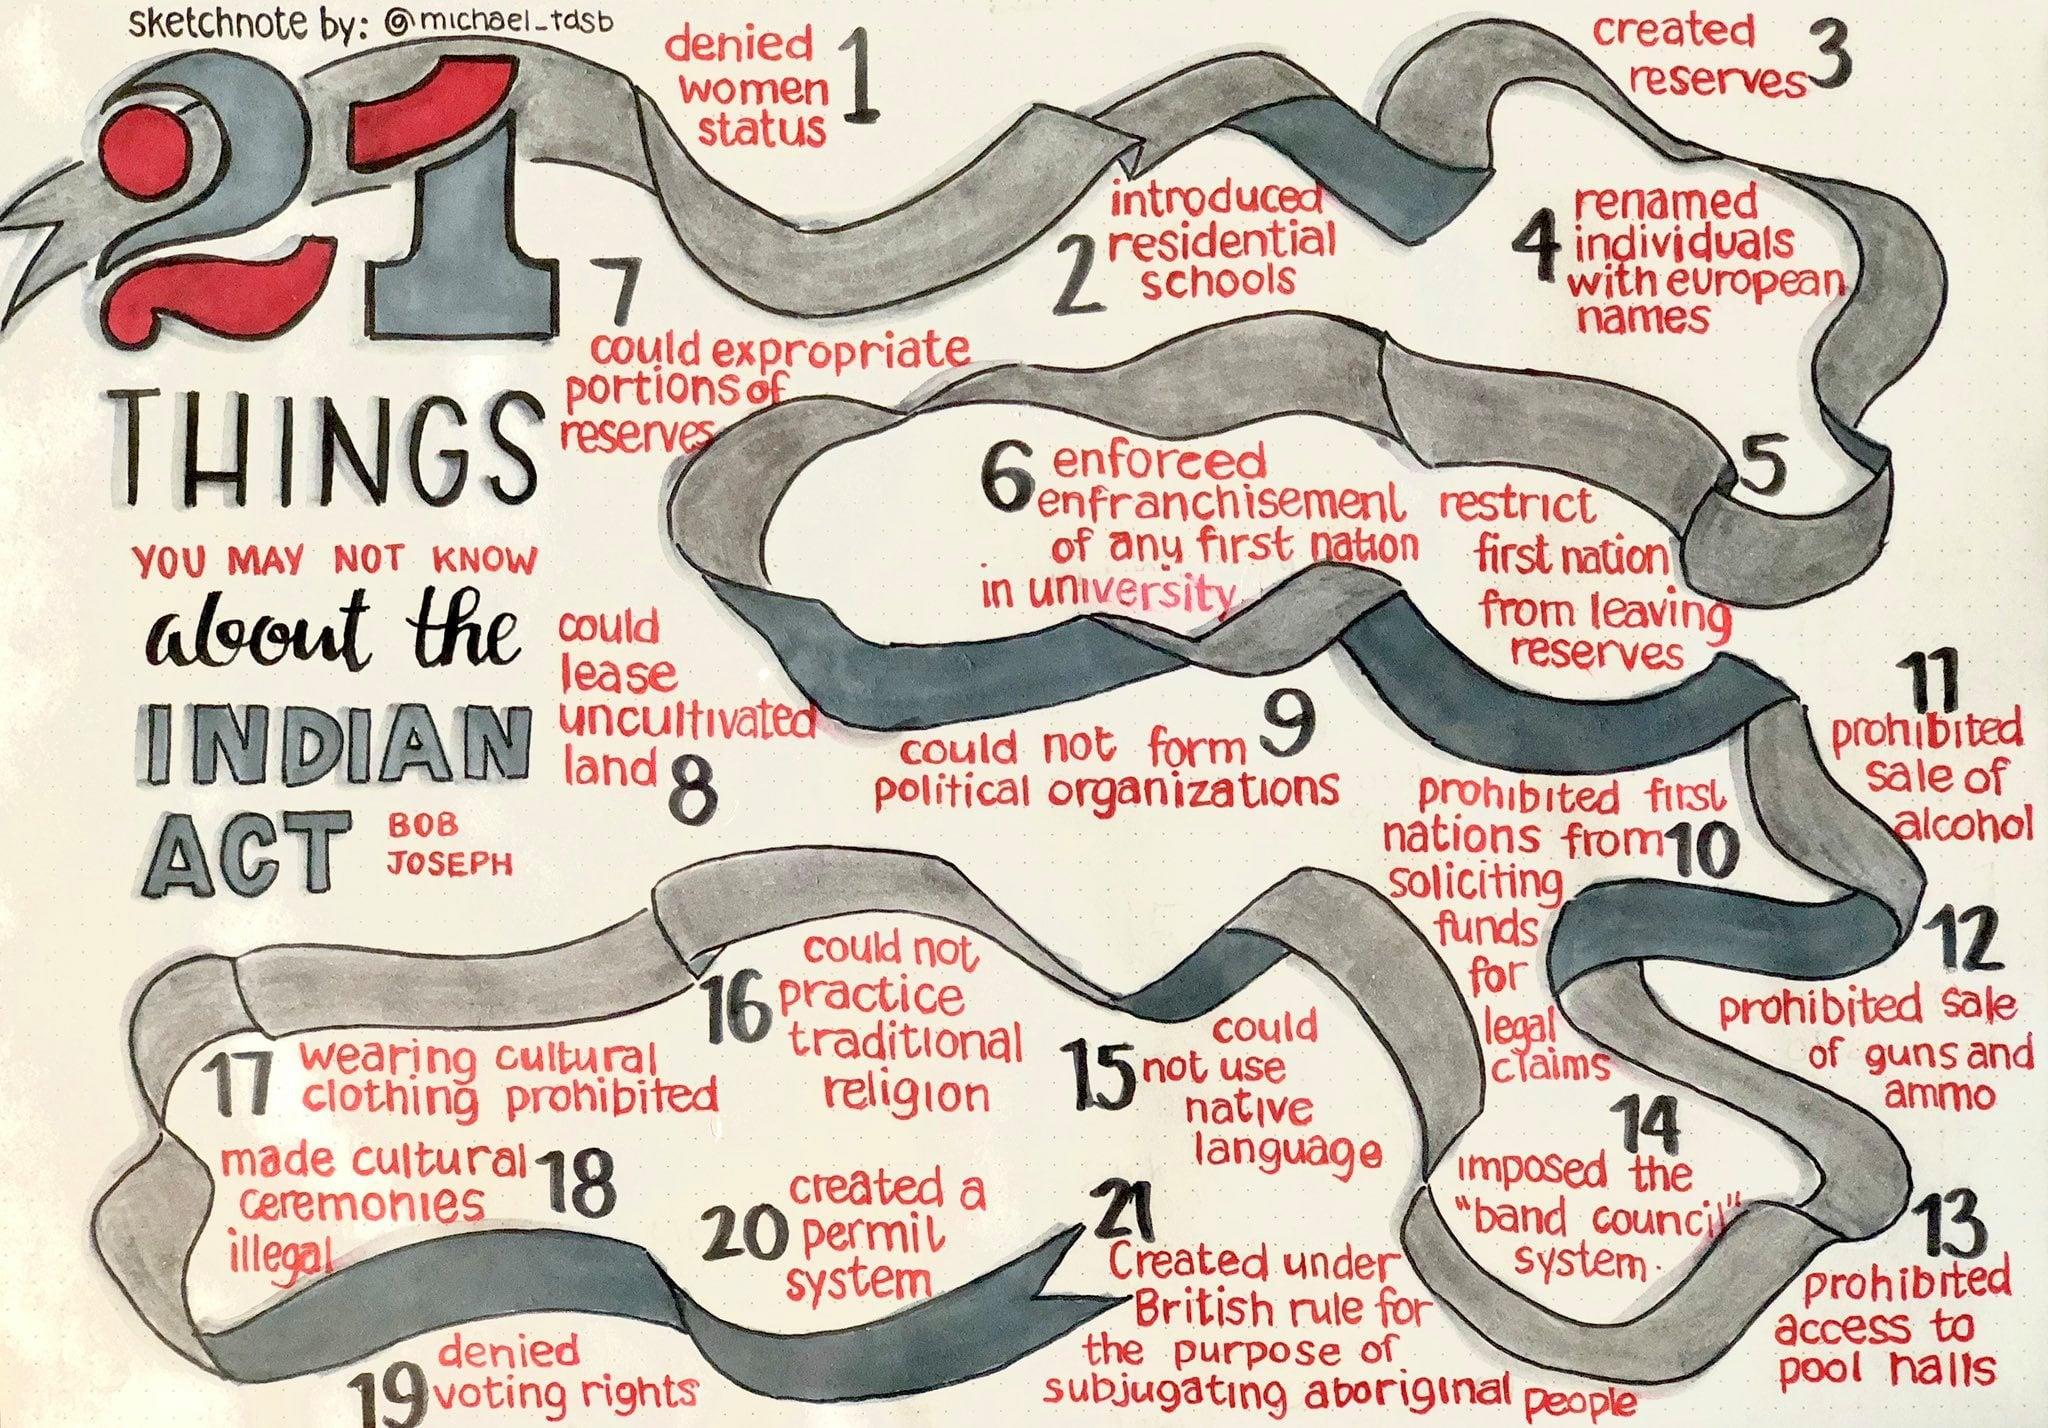 sketchnote by: @michael_tdsb
21
THINGS
YOU MAY NOT KNOW
about the
INDIAN
ACT
BOB
JOSEPH
denied
women
status
1
introduced
residential
schools
2
created
reserves
3
4
renamed
individuals
with european
names
5
restrict
first nation
from leaving
reserves
6
enforced
enfranchisement
of any first nation
in university
7
could expropriate
portions of
reserves
could
lease
uncultivated
land
8
9
could not form
political organizations
prohibited first
nations from
10
soliciting
funds
for
legal
claims
11
prohibited
sale of
alcohol
12
prohibited sale
of guns and
ammo
13
prohibited
access to
pool halls
14
imposed the
"band council"
system.
15
could
not use
native
language
16
could not
practice
traditional
religion
17
wearing cultural
clothing prohibited
made cultural
18
ceremonies
illegal
19
denied
voting rights
20
created a
permit
system
21
Created under
British rule for
the purpose of
subjugating aboriginal people